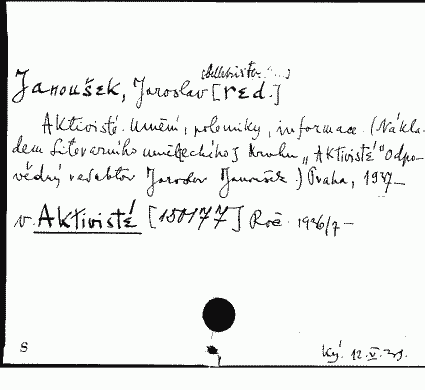 (belletrista ...)
Janoušek, Jaroslav [red.]
Aktivisté. Umění, polemiky, informace. (Nákla-
dem Literárního uměleckého Kruhu „Aktivisté" Odpo-
vědný redaktor Jaroslav Janoušek.) Praha, 1937—
v. Aktivisté [150177] Roč. 1936/7—
S
Ký. 12.V.